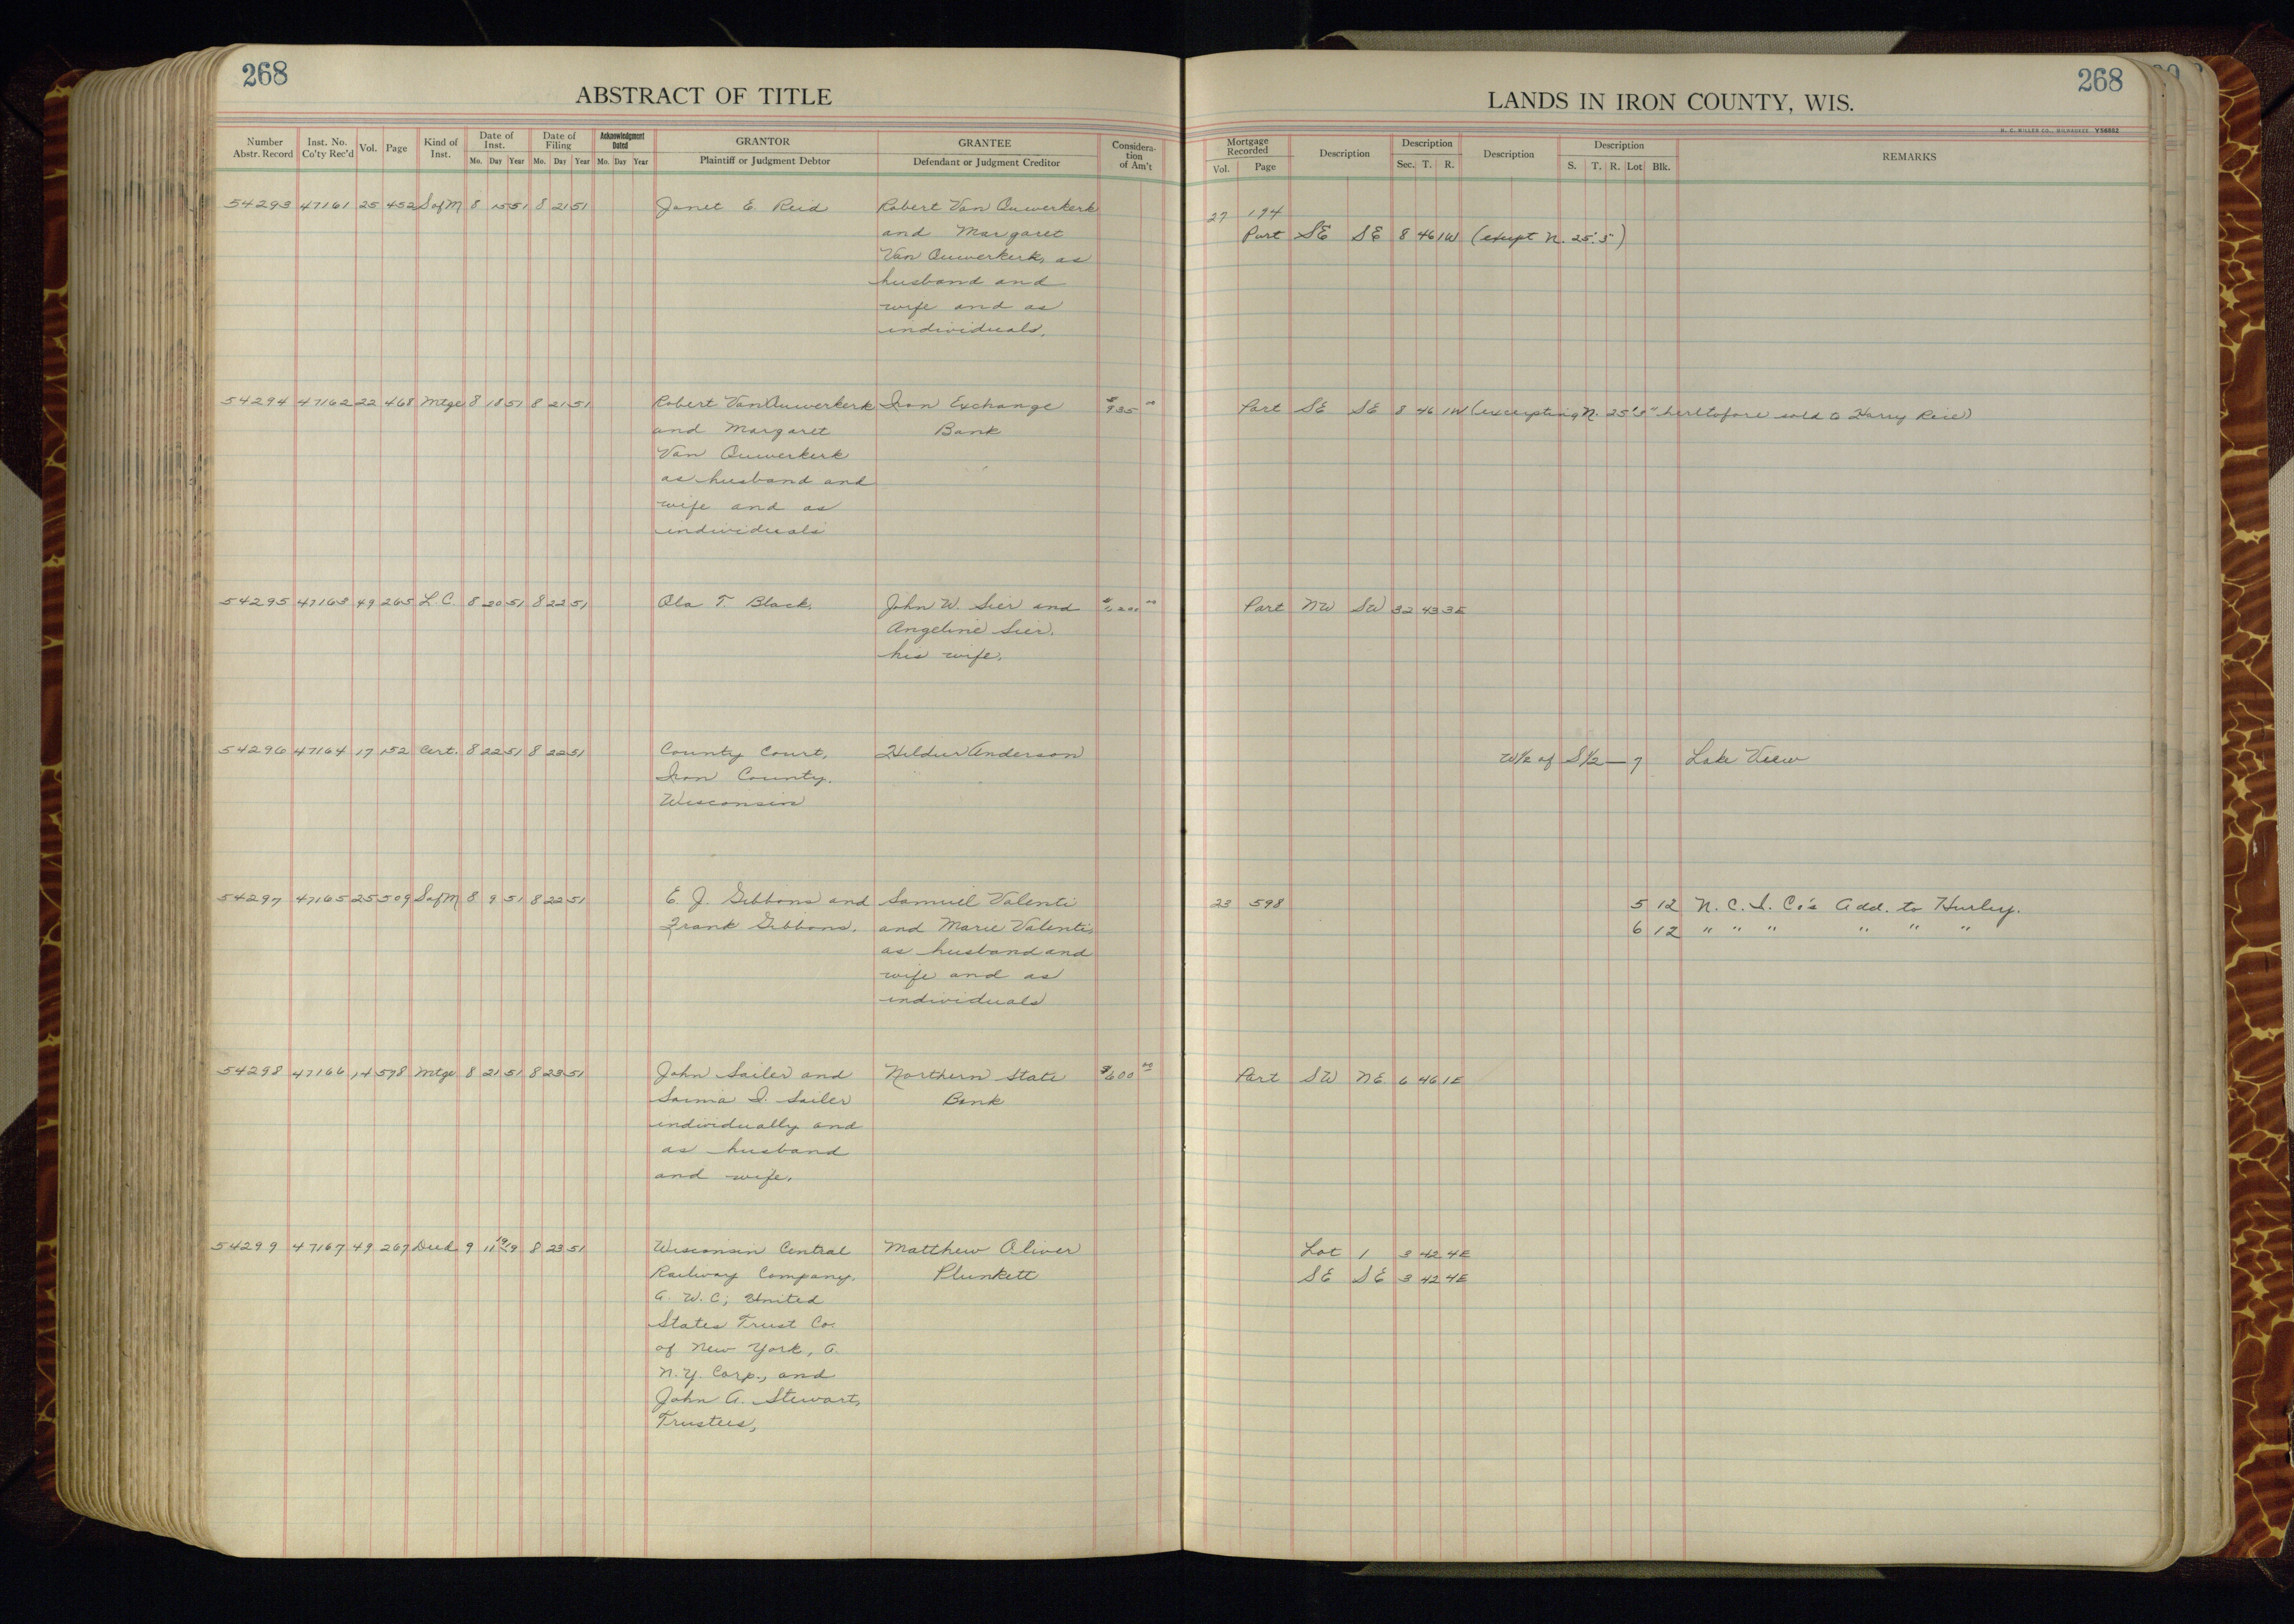 268
ABSTRACT OF TITLE
Number Abstr. Record | Inst. No. Co'ty Rec'd | Vol. | Page | Kind of Inst. | Date of Inst. Mo. Day Year | Date of Filing Mo. Day Year | Acknowledgment Dated Mo. Day Year | GRANTOR Plaintiff or Judgment Debtor | GRANTEE Defendant or Judgment Creditor | Consideration of Am't
54293 47161 25 452 S of M 8 15 51 8 21 51 Janet E. Reid Robert Van Ouwerkerk
and Margaret
Van Ouwerkerk, as
husband and
wife and as
individuals.
54294 47162 22 468 Mtge 8 18 51 8 21 51 Robert Van Ouwerkerk Iron Exchange $935 00
and Margaret Bank
Van Ouwerkerk
as husband and
wife and as
individuals
54295 47163 49 265 L.C. 8 20 51 8 22 51 Ola T. Black. John W. Sier and
Angeline Sier,
his wife.
54296 47164 17 152 Cert. 8 22 51 8 22 51 County Court, Hildur Anderson
Iron County,
Wisconsin
54297 47165 25 509 S of M 8 9 51 8 22 51 E. J. Gibbons and Samuel Valenti
Frank Gibbons. and Marie Valenti,
as husband and
wife and as
individuals
54298 47166 14 578 Mtge 8 21 51 8 23 51 John Sailer and Northern State $600 00
Saima I. Sailer Bank
individually and
as husband
and wife.
54299 47167 49 267 Deed 9 11 1919 8 23 51 Wisconsin Central Matthew Oliver
Railway Company, Plunkett
a. W.C; United
States Trust Co.
of New York, a.
N.Y. Corp., and
John A. Stewart,
Trustees,
268
LANDS IN IRON COUNTY, WIS.
H. C. MILLER CO., MILWAUKEE Y56882
Mortgage Recorded Vol. Page | Description | Description Sec. T. R. | Description | Description S. T. R. Lot Blk. | REMARKS
27 194
Part SE SE 8 46 1W (except N. 25'.5")
Part SE SE 8 46 1W (excepting N. 25'5" heretofore sold to Harry Reid)
Part NW SW 32 43 3E
W1/2 of S1/2 — 7 Lake View
23 598 5 12 N. C. I. Co's Add. to Hurley.
6 12 " " " " " "
Part SW NE 6 46 1E
Lot 1 3 42 4E
SE SE 3 42 4E